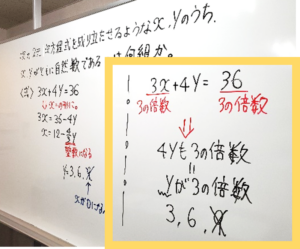 次の2元1次方程式を成り立たせるようなx,yのうち,
x,yがともに自然数である
は何組か。
<式> 3x+4y=36
3x=36-4y
x=12-4/3y
整数になる
y=3,6,9
xが0になる。
3x+4y=36
3の倍数 3の倍数
⇓
4yも3の倍数
yが3の倍数
3,6,9